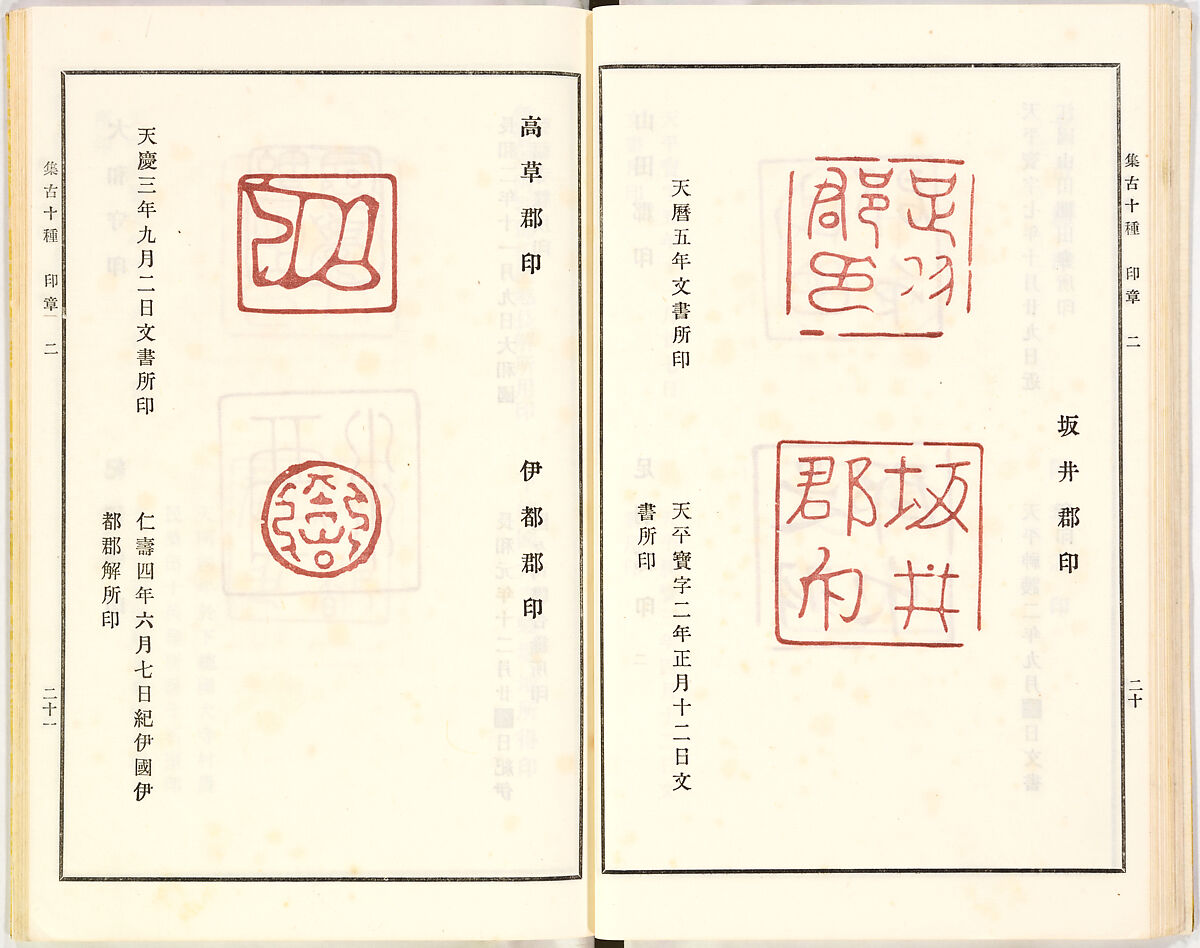 集古十種 印章 二
二十
足羽
郡印
天曆五年文書所印
坂井郡印
坂井
郡印
天平寶字二年正月十二日文
書所印
高草郡印
天慶三年九月二日文書所印
伊都郡印
仁壽四年六月七日紀伊國伊
都郡解所印
集古十種 印章 二
二十一